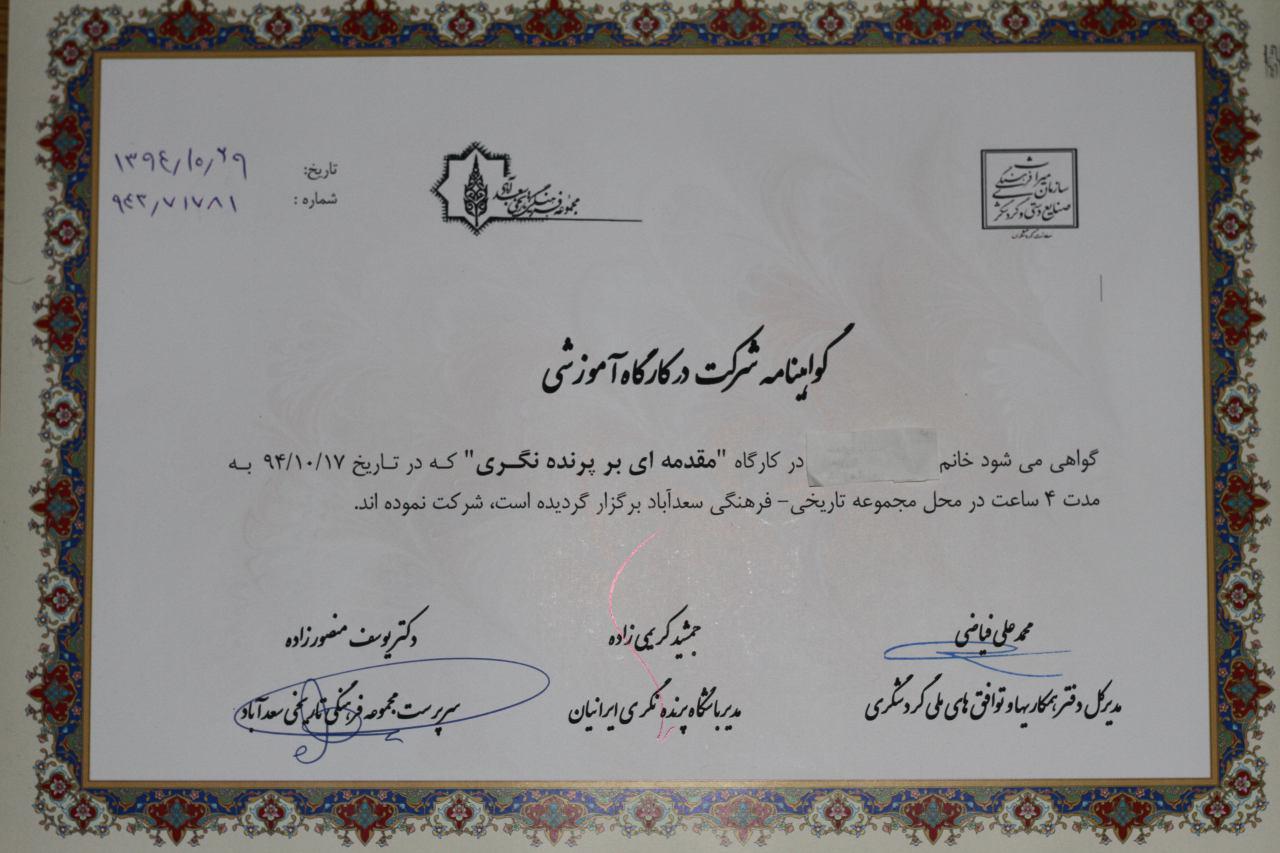 سازمان میراث فرهنگی
صنایع دستی و گردشگری
معاونت گردشگری
مجموعه فرهنگی تاریخی سعدآباد
تاریخ: ۱۳۹۴/۱۰/۲۹
شماره : ۹۴۲/۷۱۷۸۱
گواهینامه شرکت در کارگاه آموزشی
گواهی می شود خانم در کارگاه "مقدمه ای بر پرنده نگری" که در تاریخ ۹۴/۱۰/۱۷ به
مدت ۴ ساعت در محل مجموعه تاریخی- فرهنگی سعدآباد برگزار گردیده است، شرکت نموده اند.
محمد علی فیاضی
مدیرکل دفتر همکاریها و توافق های ملی گردشگری
جمشید کریمی زاده
مدیر باشگاه پرنده نگری ایرانیان
دکتر یوسف منصورزاده
سرپرست مجموعه فرهنگی تاریخی سعدآباد